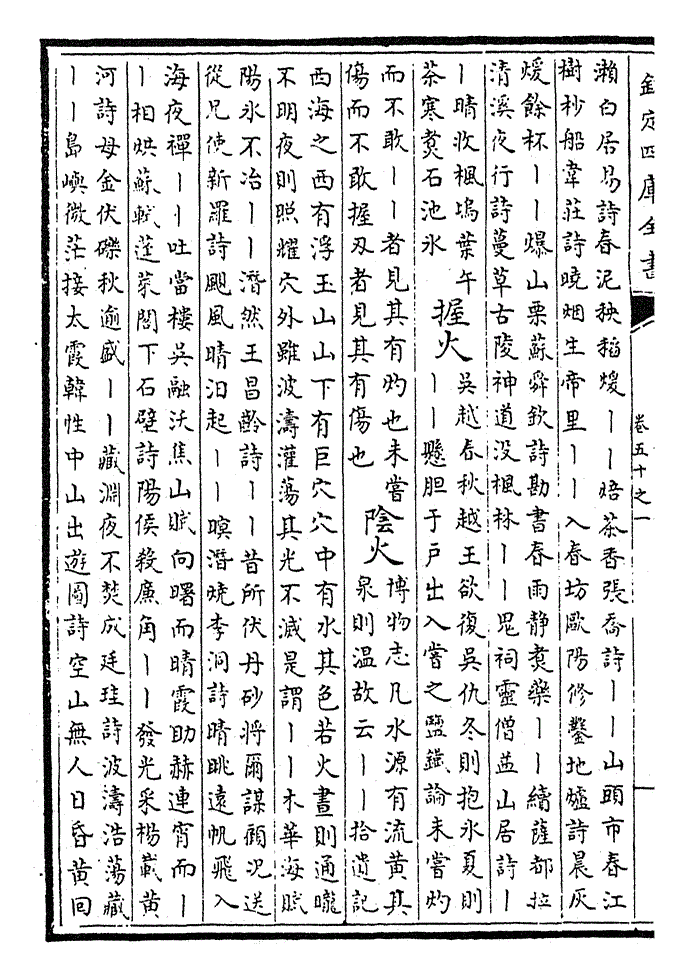 欽定四庫全書
卷五十之一
瀨白居易詩春泥秧稻煖——焙茶香張喬詩——山頭市春江
樹杪船韋莊詩曉烟生帝里——入春坊歐陽修鑿地爐詩晨灰
煖餘杯——爆山栗蘇舜欽詩勘書春雨静煑藥——續薩都拉
清溪夜行詩蔓草古陵神道没楓林——鬼祠靈僧益山居詩—
—晴收楓塢葉午
茶寒煑石池氷
握火
吳越春秋越王欲復吳仇冬則抱氷夏則
——懸胆于戶出入嘗之鹽鐵論未嘗灼
而不敢——者見其有灼也未嘗
傷而不敢握刃者見其有傷也
陰火
博物志凡水源有流黄其
泉則温故云——拾遺記
西海之西有浮玉山山下有巨穴穴中有水其色若火晝則通曨
不明夜則照耀穴外雖波濤灌蕩其光不滅是謂——木華海賦
陽氷不冶——潛然王昌齡詩——昔所伏丹砂將爾謀顧况送
從兄使新羅詩颶風晴汩起——暝潛燒李洞詩晴眺遠帆飛入
海夜禪——吐當樓吳融沃焦山賦向曙而晴霞助赫連宵而—
—相烘蘇軾蓬萊閣下石壁詩陽侯殺廉角——發光采楊載黄
河詩母金伏礫秋逾盛——藏淵夜不焚成廷珪詩波濤浩蕩藏
——島嶼微茫接太霞韓性中山出遊圖詩空山無人日昏黄回